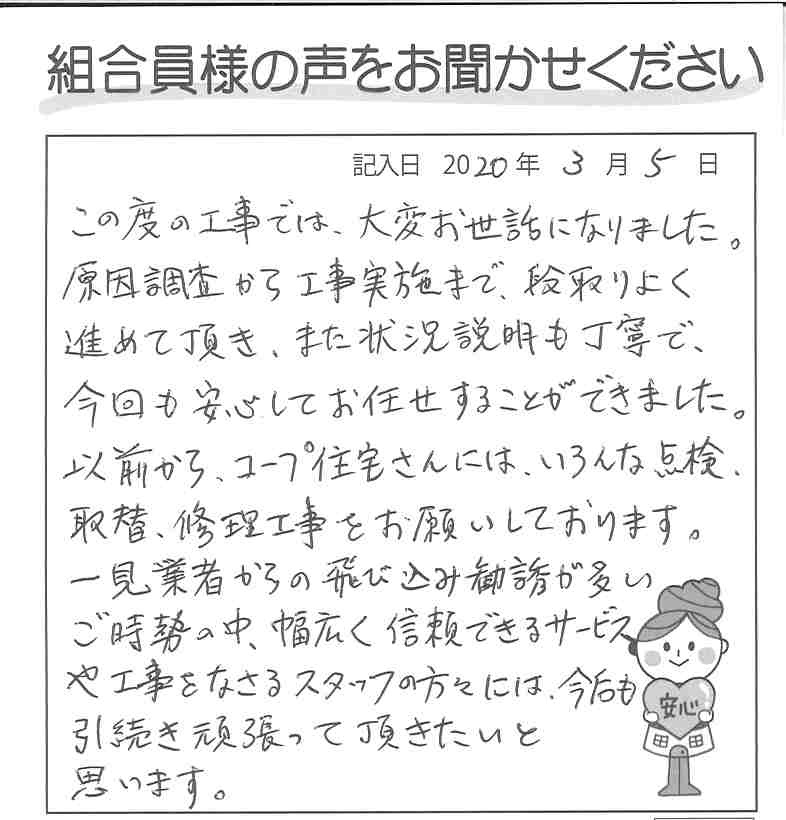 組合員様の声をお聞かせください
記入日 2020年 3月 5日
この度の工事では、大変お世話になりました。
原因調査から工事実施まで、段取りよく
進めて頂き、また状況説明も丁寧で、
今回も安心してお任せすることができました。
以前から、コープ住宅さんには、いろんな点検、
取替、修理工事をお願いしております。
一見業者からの飛び込み勧誘が多い
ご時勢の中、幅広く信頼できるサービス
や工事をなさるスタッフの方々には、今后も
引続き頑張って頂きたいと
思います。
安心